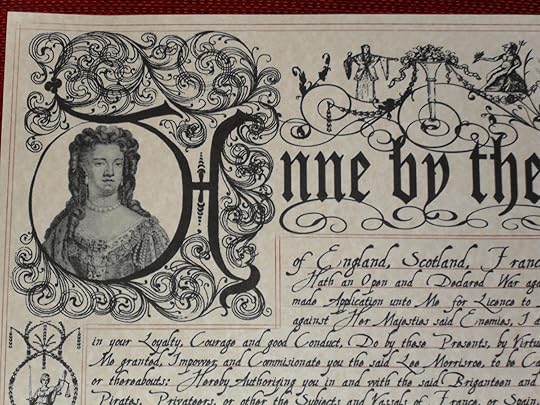 Anne by the
of England, Scotland, Franc
Hath an Open and Declared War aga
made Application unto Me for Licence to
against Her Majesties said Enemies, I d
in your Loyalty, Courage and good Conduct, Do by these Presents, by Virtu
Me granted, Impower, and Commisionate you the said Lee Morrisroe, to be Ca
or thereabouts: Hereby Authorizing you in and with the said Briganteen and
Pirates, Privateers, or other the Subjects and Vassals of France, or Spain,